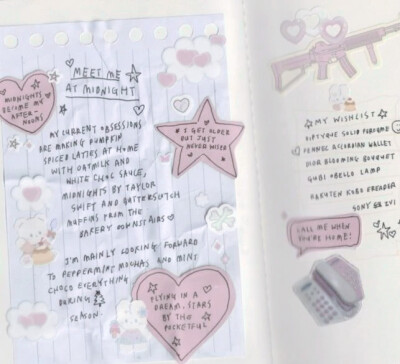 MEET ME
AT MIDNIGHT
MIDNIGHTS
BECOME MY
AFTER
NOONS
MY CURRENT OBSESSIONS
ARE MAKING PUMPKIN
SPICED LATTES AT HOME
WITH OATMILK AND
WHITE CHOC SAUCE,
MIDNIGHTS BY TAYLOR
SWIFT AND BUTTERSCOTCH
MUFFINS FROM THE
BAKERY DOWNSTAIRS
I'M MAINLY LOOKING FORWARD
TO PEPPERMINT MOCHAS AND MINT
CHOCO EVERYTHING
DURING
SEASON.
# I GET OLDER
BUT JUST
NEVER WISER
FLYING IN A
DREAM, STARS
BY THE
POCKETFUL
MY WISHLIST
DIPTYQUE SOLID PERFUME
CHANEL ACCORDIAN WALLET
DIOR BLOOMING BOUQUET
GUBI OBELLO LAMP
RAKUTEN KOBO EREADER
SONY ZV1
CALL ME WHEN
YOU'RE HOME!